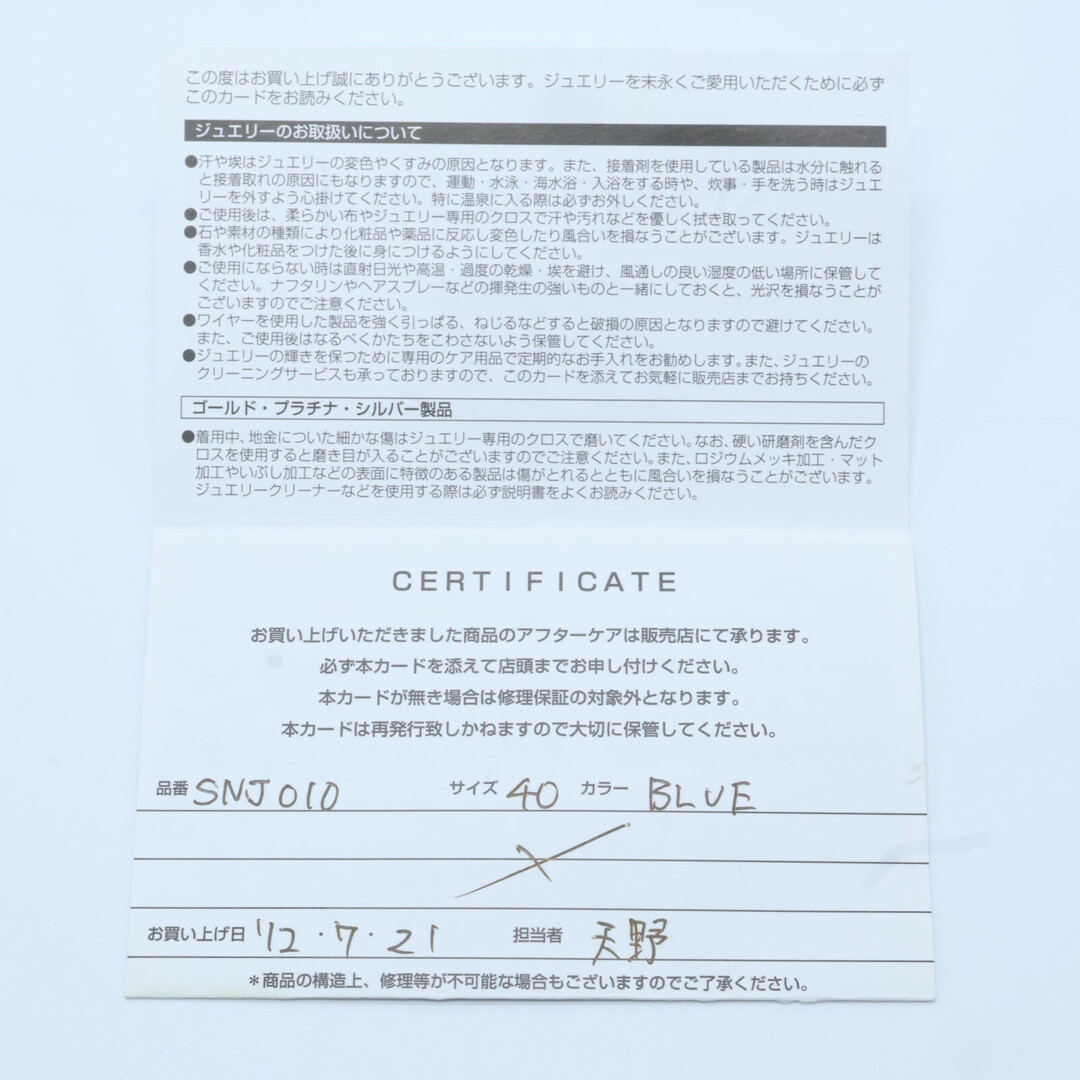 この度はお買い上げ誠にありがとうございます。ジュエリーを末永くご愛用いただくために必ず
このカードをお読みください。
ジュエリーのお取扱いについて
●汗や埃はジュエリーの変色やくすみの原因となります。また、接着剤を使用している製品は水分に触れる
と接着取れの原因にもなりますので、運動・水泳・海水浴・入浴をする時や、炊事・手を洗う時はジュエ
リーを外すよう心掛けてください。特に温泉に入る際は必ずお外しください。
●ご使用後は、柔らかい布やジュエリー専用のクロスで汗や汚れなどを優しく拭き取ってください。
●石や素材の種類により化粧品や薬品に反応し変色したり風合いを損なうことがございます。ジュエリーは
香水や化粧品をつけた後に身につけるようにしてください。
●ご使用にならない時は直射日光や高温・過度の乾燥・埃を避け、風通しの良い湿度の低い場所に保管して
ください。ナフタリンやヘアスプレーなどの揮発生の強いものと一緒にしておくと、光沢を損なうことが
ございますのでご注意ください。
●ワイヤーを使用した製品を強く引っぱる、ねじるなどすると破損の原因となりますので避けてください。
また、ご使用後はなるべくかたちをこわさないよう保管してください。
●ジュエリーの輝きを保つために専用のケア用品で定期的なお手入れをお勧めします。また、ジュエリーの
クリーニングサービスも承っておりますので、このカードを添えてお気軽に販売店までお持ちください。
ゴールド・プラチナ・シルバー製品
●着用中、地金についた細かな傷はジュエリー専用のクロスで磨いてください。なお、硬い研磨剤を含んだク
ロスを使用すると磨き目が入ることがございますのでご注意ください。また、ロジウムメッキ加工・マット
加工やいぶし加工などの表面に特徴のある製品は傷がとれるとともに風合いを損なうことがございます。
ジュエリークリーナーなどを使用する際は必ず説明書をよくお読みください。
CERTIFICATE
お買い上げいただきました商品のアフターケアは販売店にて承ります。
必ず本カードを添えて店頭までお申し付けください。
本カードが無き場合は修理保証の対象外となります。
本カードは再発行致しかねますので大切に保管してください。
品番 SNJ010 サイズ 40 カラー BLUE
お買い上げ日 '12・7・21 担当者 天野
*商品の構造上、修理等が不可能な場合もございますのでご了承ください。